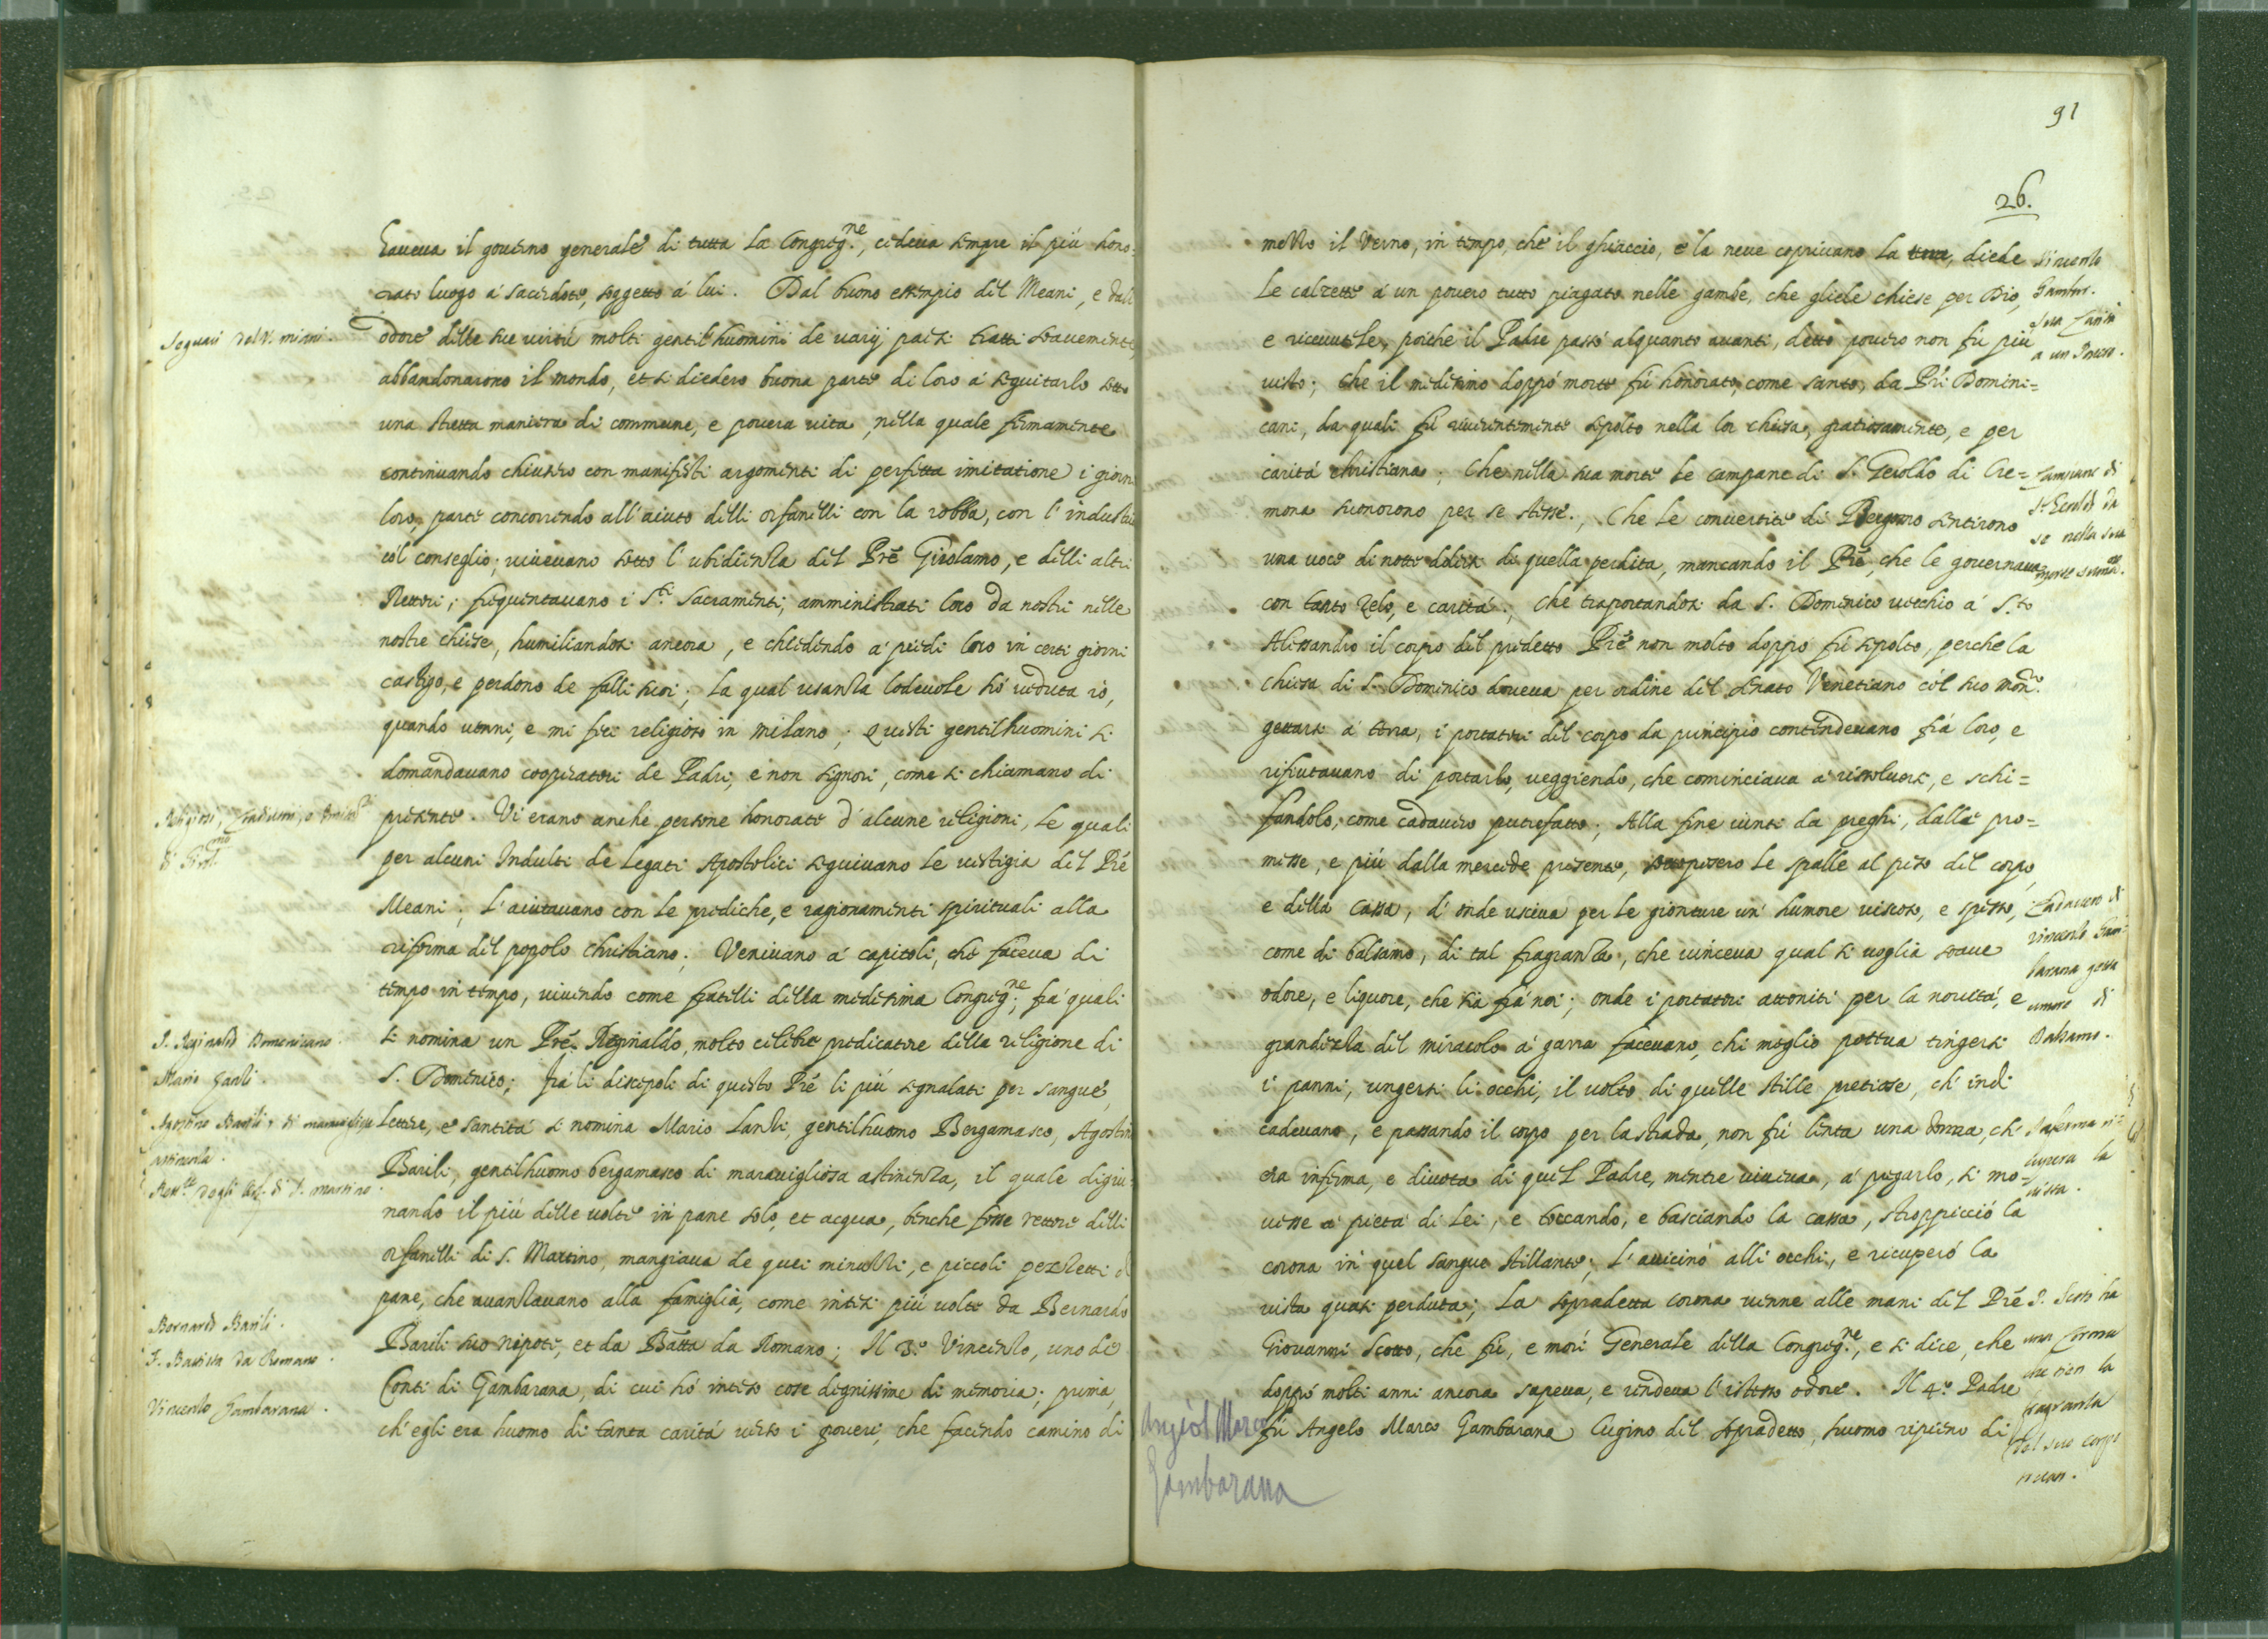 haueua il gouerno generale di tutta la Congreg.ne, cedeua sempre il più hono-
rato luogo à sacerdote, soggetto à lui. Dal buono essempio del Meani, e dall'
odore delle sue uirtù molti gentil'huomini de uarij paesi tratti soauemente,
abbandonarono il mondo, et si diedero buona parte di loro à seguitarlo sotto
una stretta maniera di commune, e pouera uita, nella quale fermamente
continuando chiusero con manifesti argomenti di perfetta imitatione i giorni
loro, parte concorrendo all'aiuto delli orfanelli con la robba, con l'industria
co'l conseglio; uiueuano sotto l'ubidienza del Prê Girolamo, e delli altri
Rettori; frequentauano i S.ti Sacramenti, amministrati loro da nostri nelle
nostre chiese, humiliandosi ancora, e chiedendo a' piedi loro in certi giorni
castigo, e perdono de falli suoi; la qual usanza lodeuole hò ueduta io,
quando uenni, e mi feci religioso in Milano; Questi gentilhuomini si
domandauano cooperatori de Padri, e non signori, come si chiamano di
presente. Vi erano anche persone honorate d'alcune religioni, le quali
per alcuni Indulti de Legati Apostolici seguiuano le uestigia del Prê
Meani; L'aiutauano con le prediche, e ragionamenti spirituali alla
riforma del popolo christiano; Veniuano a' capitoli, che faceua di
tempo in tempo, uiuendo come fratelli della medesima Congreg.ne; fra' quali
si nomina un Prê Reginaldo, molto celebre predicatore della religione di
S. Domenico; frà li discepoli di questo Prê li più segnalati per sangue,
lettere, e santità si nomina Mario Lanzi, gentilhuomo Bergamasco, Agostin
Barili, gentilhuomo bergamasco di marauigliosa astinenza, il quale digiu-
nando il più delle uolte in pane solo, et acqua, benche fosse rettore delli
orfanelli di S. Martino, mangiaua de quei minuzzi, e piccoli pezzetti d
pane, che auanzauano alla famiglia, come intesi più uolte da Bernardo
Barili suo nipote, et da Batta da Romano; Il 3.º Vincenzo, uno de
Conti di Gambarana, di cui hò inteso cose dignissime di memoria; prima,
ch'egli era huomo di tanta carità uerso i poueri, che facendo camino di
Seguaci del V. miani.
Religiosi,
P. Reginaldo Domenicano.
Mario Lanzi.
Agostino Barili, di marauigliosa
astinenza.
Rett.re degli Orf. di S. Martino.
Bernardo Barili.
F. Battista da Romano.
Vincenzo Gambarana.
91
26.
mezzo il Verno, in tempo, che il ghiaccio, e la neue copriuano la terra, diede
le calzette à un pouero tutto piagato nelle gambe, che gliele chiese per Dio,
e riceuutele, poiche il Padre passò alquanto auanti, detto pouero non fù più
uisto; che il medesimo doppò morte fù honorato, come santo, da Prī Domini=
cani, da quali fù riuerentemente sepolto nella lor chiesa, gratiosamente, e per
carità christiana; Che nella sua morte le campane di S. Geroldo di Cre=
mona suonorono per se stesse; Che le conuertite di Bergamo sentirono
una uoce di notte dolersi di quella perdita, mancando il Prê, che le gouernaua
con tanto zelo, e carità; Che traportandosi da S. Domenico uecchio à S.to
Alessandro il corpo del predetto Prê non molto doppo fù sepolto, perche la
chiesa di S. Domenico doueua per ordine del Senato Venetiano co'l suo mon.ro
gettarsi à terra, i portatori del corpo da principio contendeuano frà loro, e
rifiutauano di portarlo, ueggiendo, che cominciaua à risoluersi, e schi=
fandolo, come cadauero putrefatto; Alla fine uinti da preghi, dalle pro=
messe, e più dalla mercede presente, sottoposero le spalle al peso del corpo,
e della cassa, d'onde usciua per le gionture un' humore uiscoso, e spesso,
come di balsamo, di tal fragranza, che uinceua qual si uoglia soaue
odore, e liquore, che sia frà noi; onde i portatori attoniti per la nouità, e
grandezza del miracolo à garra faceuano, chi meglio poteua tingersi
i panni, ungersi li occhi, il uolto di quelle stille pretiose, ch' indi
cadeuano, e passando il corpo per la strada, non fù lenta una donna, ch'
era inferma, e diuota di quel Padre, mentre uiueua, à pregarlo, si mo=
uesse à pietà di lei, e toccando, e basciando la cassa, stroppicciò la
corona in quel sangue stillante; L'auicinò alli occhi, e ricuperò la
uista quasi perduta; La sopradetta corona uenne alle mani del Prê
Giouanni Scotto, che fù, e morì Generale della Congreg.ne, e si dice, che
doppò molti anni ancora sapeua, e rendeua l'istesso odore. Il 4.º Padre
fù Angelo Marco Gambarana Cugino del sopradetto, huomo ripieno di
Vincenzo
Gambar.
sua Carità
a un Pouero.
Campane di
S. Geroldo da
se nella sua
morte
Cadauero di
Vincenzo Gam-
barana getta
umore di
Balsamo.
Inferma ri-
cupera la
uista.
P. Scoto ha
una Corona
che con la
fragranza
del suo corpo
Angiol Marco
Gambarana